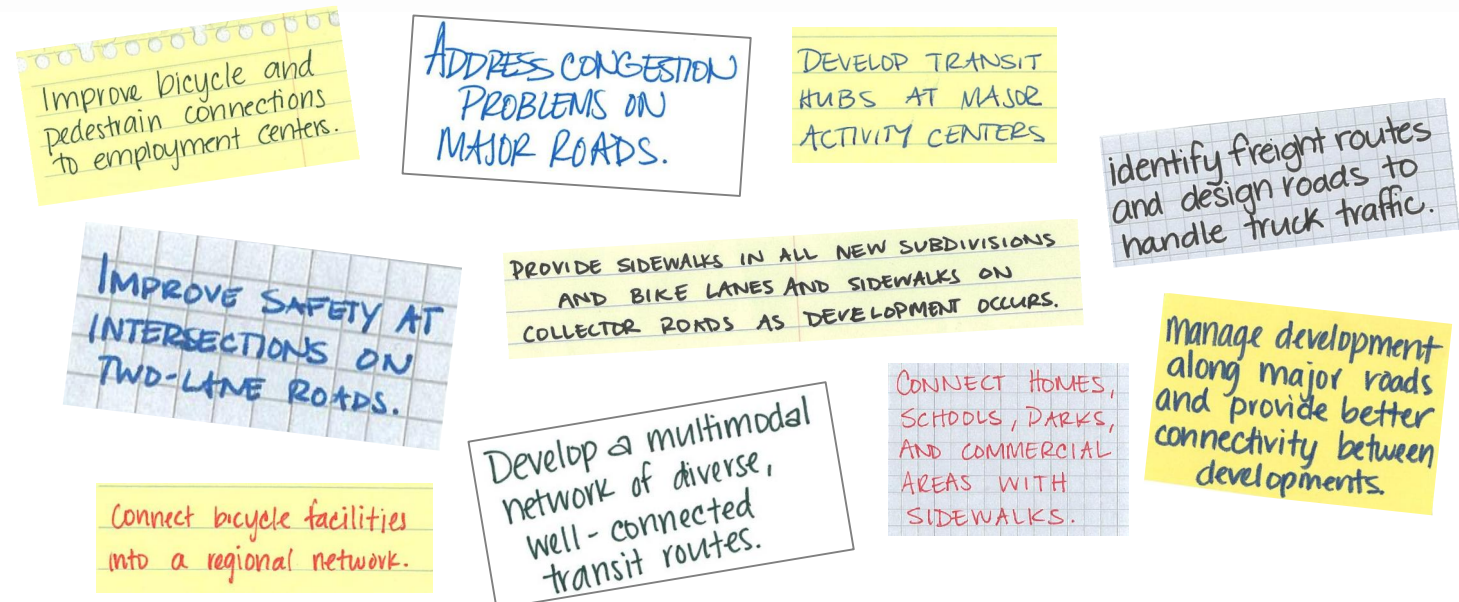 Improve bicycle and
pedestrain connections
to employment centers.
ADDRESS CONGESTION
PROBLEMS ON
MAJOR ROADS.
DEVELOP TRANSIT
HUBS AT MAJOR
ACTIVITY CENTERS
identify freight routes
and design roads to
handle truck traffic.
IMPROVE SAFETY AT
INTERSECTIONS ON
TWO-LANE ROADS.
PROVIDE SIDEWALKS IN ALL NEW SUBDIVISIONS
AND BIKE LANES AND SIDEWALKS ON
COLLECTOR ROADS AS DEVELOPMENT OCCURS.
manage development
along major roads
and provide better
connectivity between
developments.
CONNECT HOMES,
SCHOOLS, DARKS,
AND COMMERCIAL
AREAS WITH
SIDEWALKS.
Develop a multimodal
network of diverse,
well-connected
transit routes.
Connect bicycle facilities
into a regional network.